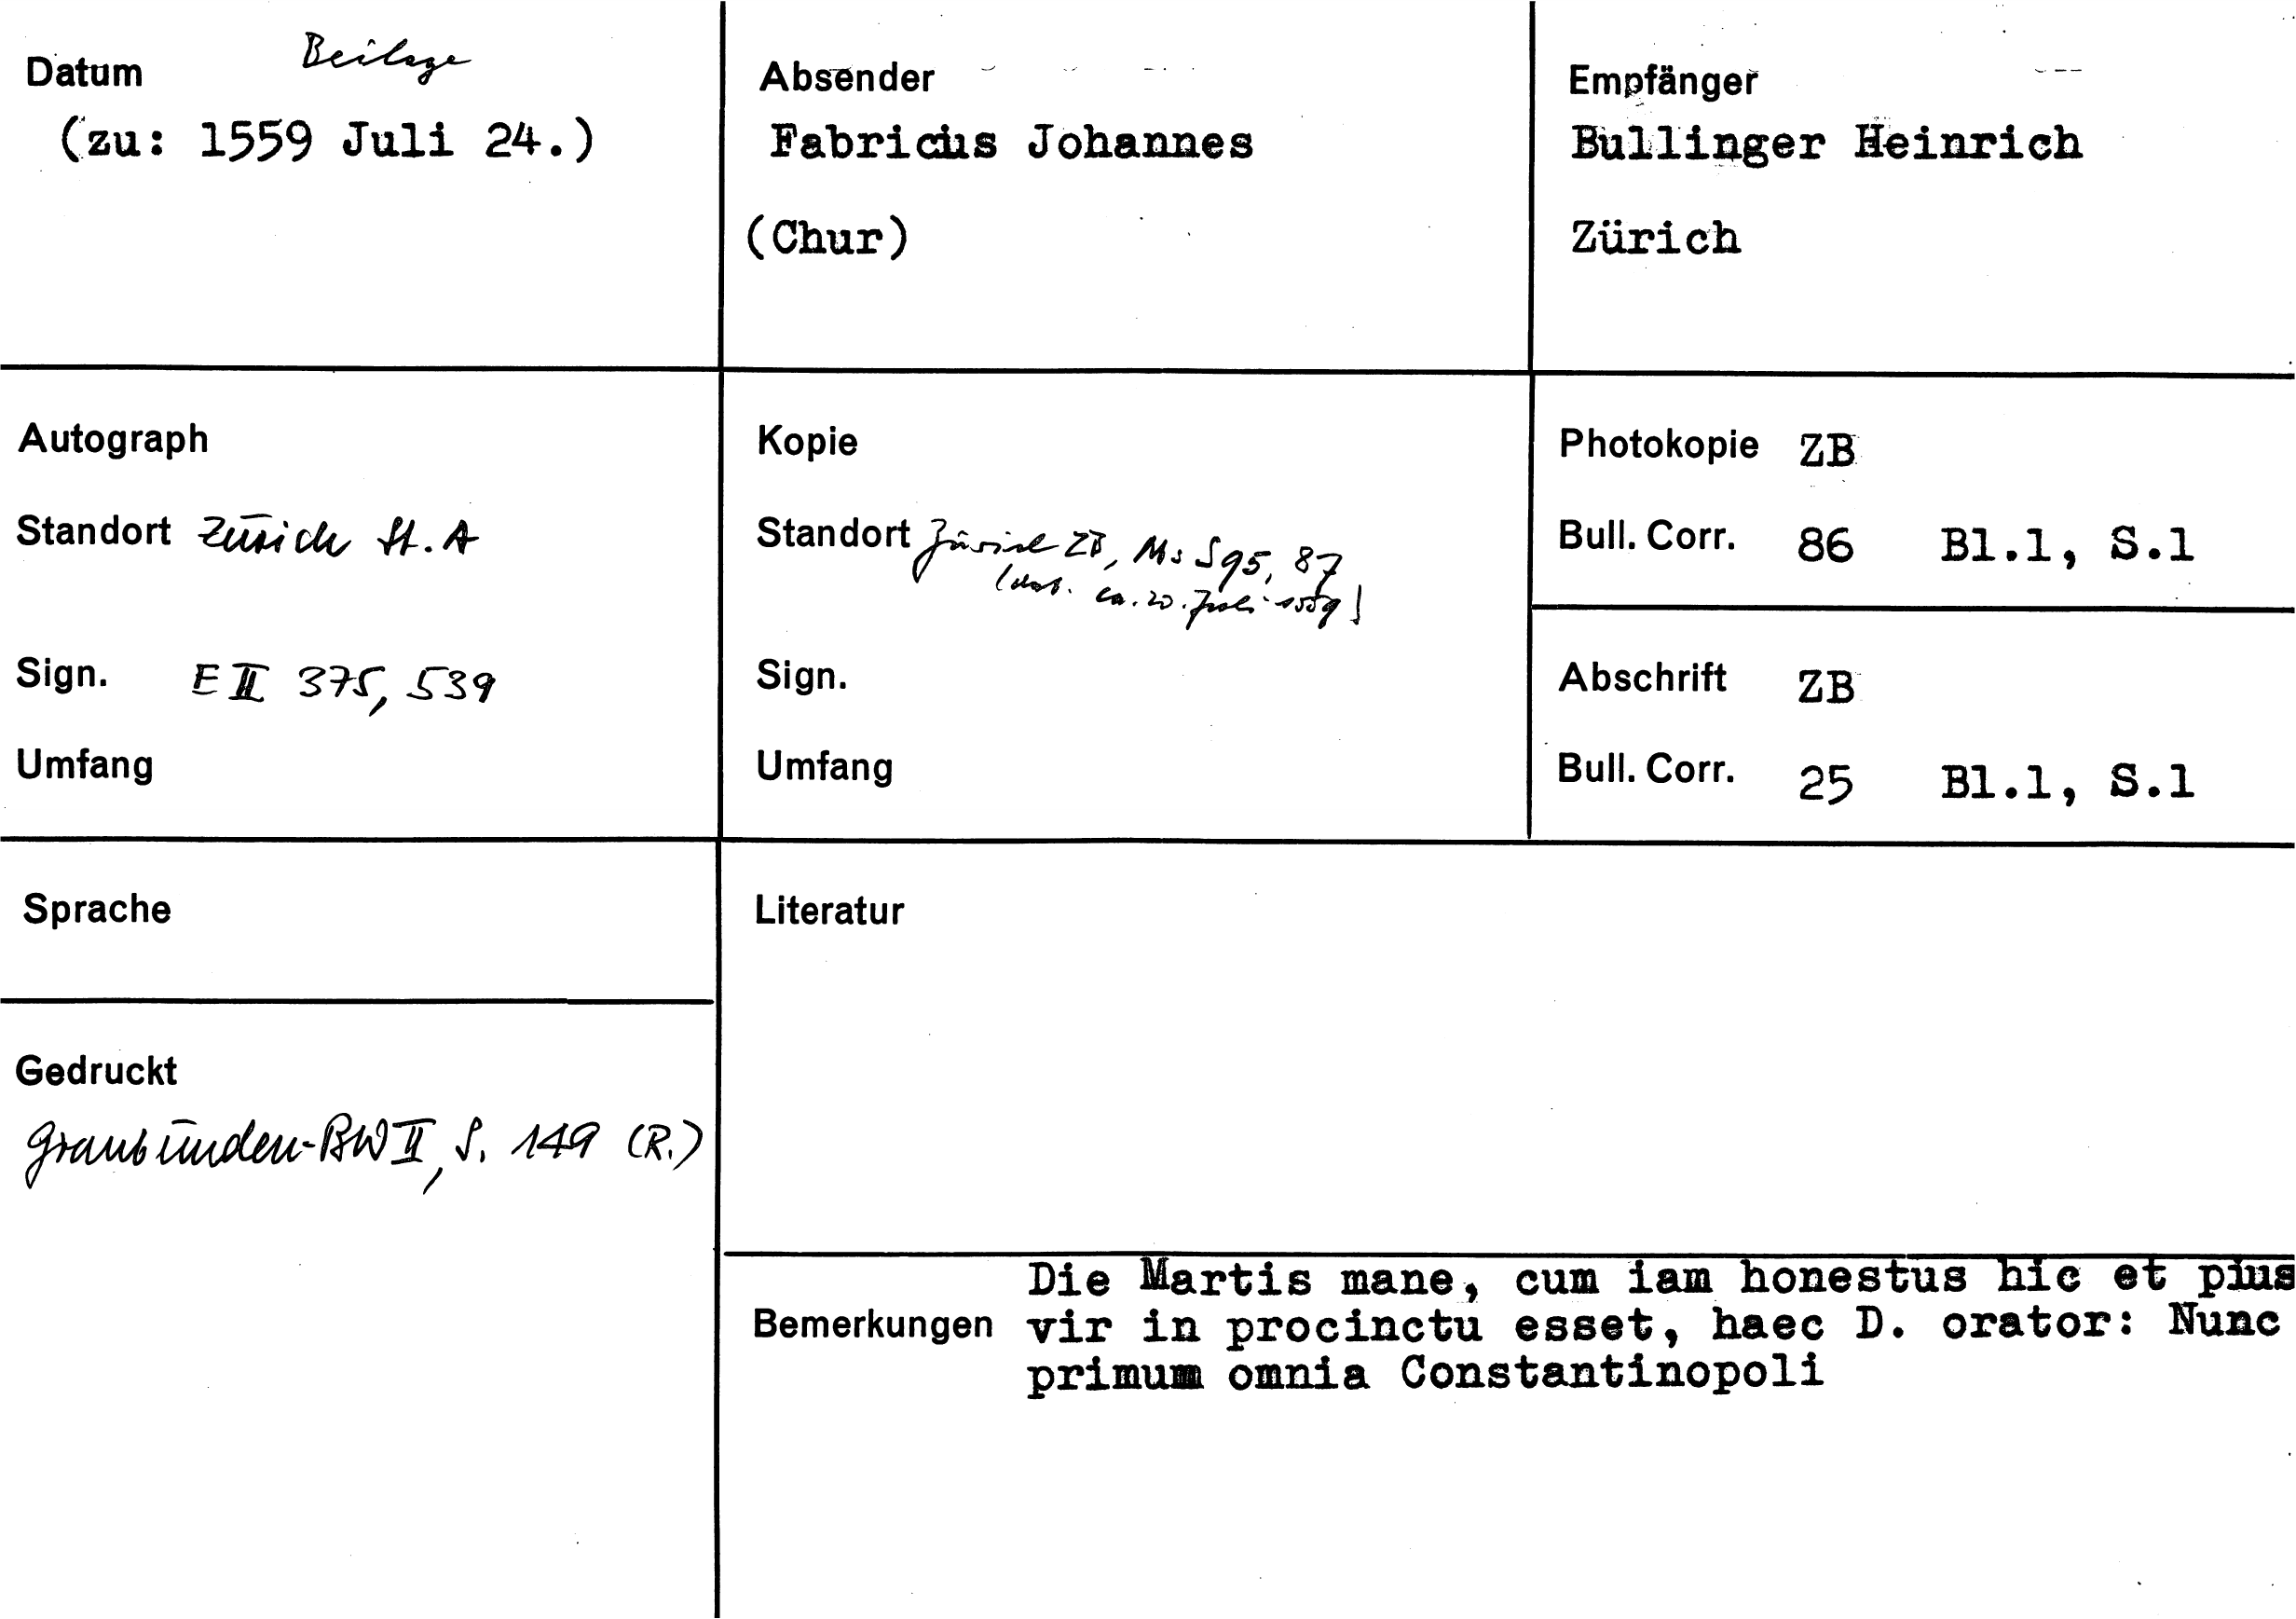 Datum Beilage
(zu: 1559 Juli 24.)
Absender
Fabricius Johannes
(Chur)
Empfänger
Bullinger Heinrich
Zürich
Autograph
Standort Zürich St. A
Sign. E II 375, 539
Umfang
Kopie
Standort Zürich ZB, Ms S 95, 87
ca. 20. Juli 1559)
Sign.
Umfang
Photokopie ZB
Bull. Corr. 86 Bl.1, S.1
Abschrift ZB
Bull. Corr. 25 Bl.1, S.1
Sprache
Gedruckt
Graubünden-BW II, S. 149 (R.)
Literatur
Bemerkungen
Die Martis mane, cum iam honestus hic et pius
vir in procinctu esset, haec D. orator: Nunc
primum omnia Constantinopoli